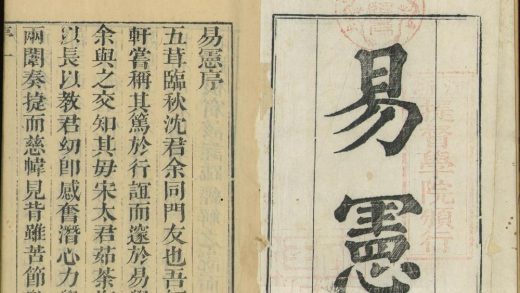 易
憲
提督學院頒行
易憲序
五茸臨秋沈君余同門友也吾
軒嘗稱其篤於行誼而邃於易
余與之交知其毋宋太君茹荼
以長以教君幼卽感奮潛心力
兩闈奏捷而慈幃見背難苦節
序